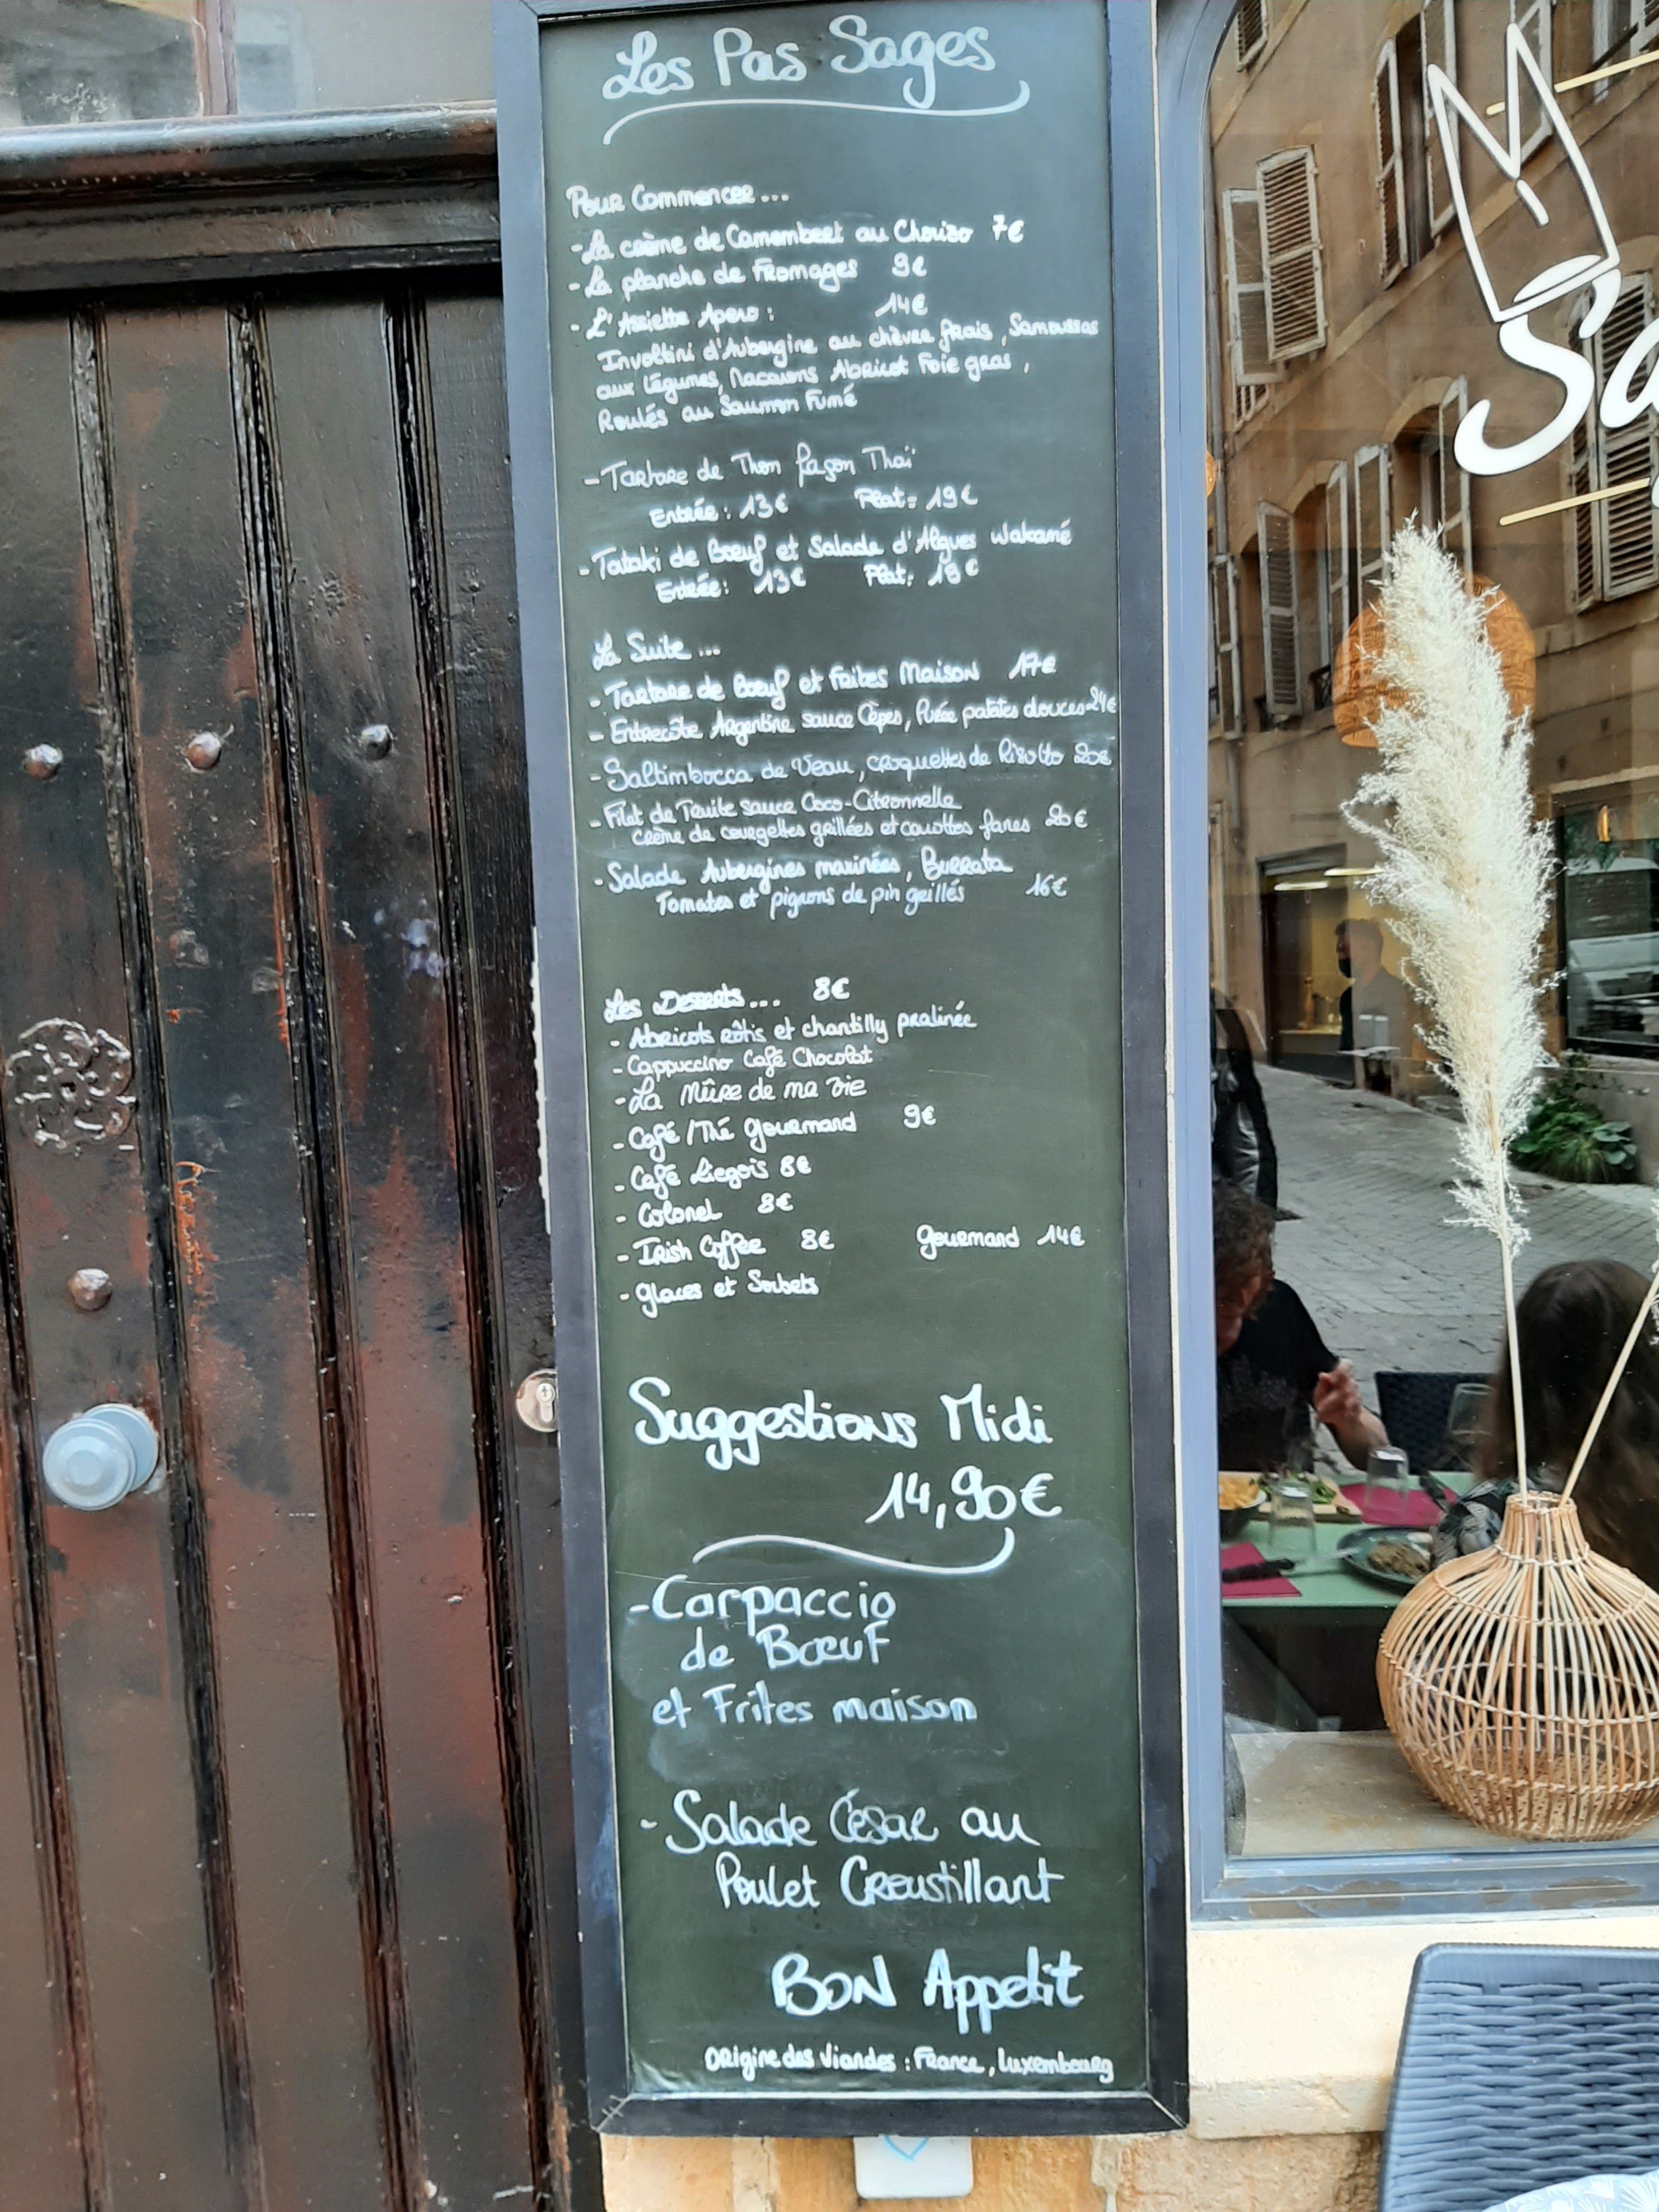 Les Pas Sages
Pour Commencer...
- La crème de Camembert au Chorizo 7€
- La planche de Fromages 9€
- L'Assiette Apero : 14€
Involtini d'Aubergine au chèvre frais, Samoussas
aux légumes, Macarons Abricot Foie gras,
Roulés au Saumon Fumé
- Tartare de Thon façon Thaï
Entrée : 13€ Plat : 19€
- Tataki de Bœuf et Salade d'Algues wakamé
Entrée : 13€ Plat : 19€
La Suite...
- Tartare de Bœuf et Frites Maison 17€
- Entrecôte Argentine sauce Cèpes, Purée patates douces 24€
- Saltimbocca de Veau, croquettes de Risotto 20€
- Filet de Truite sauce Coco-Citronnelle
Crème de courgettes grillées et carottes fanes 20€
- Salade Aubergines marinées, Burrata
Tomates et pignons de pin grillés 16€
Les Desserts... 8€
- Abricots rôtis et chantilly pralinée
- Cappuccino Café Chocolat
- La Mûre de ma vie
- Café / Thé gourmand 9€
- Café Liegois 8€
- Colonel 8€
- Irish Coffee 8€ gourmand 14€
- Glaces et Sorbets
Suggestions Midi
14,90€
- Carpaccio
de Bœuf
et Frites maison
- Salade César au
Poulet Croustillant
BON Appetit
Origine des Viandes : France, Luxembourg